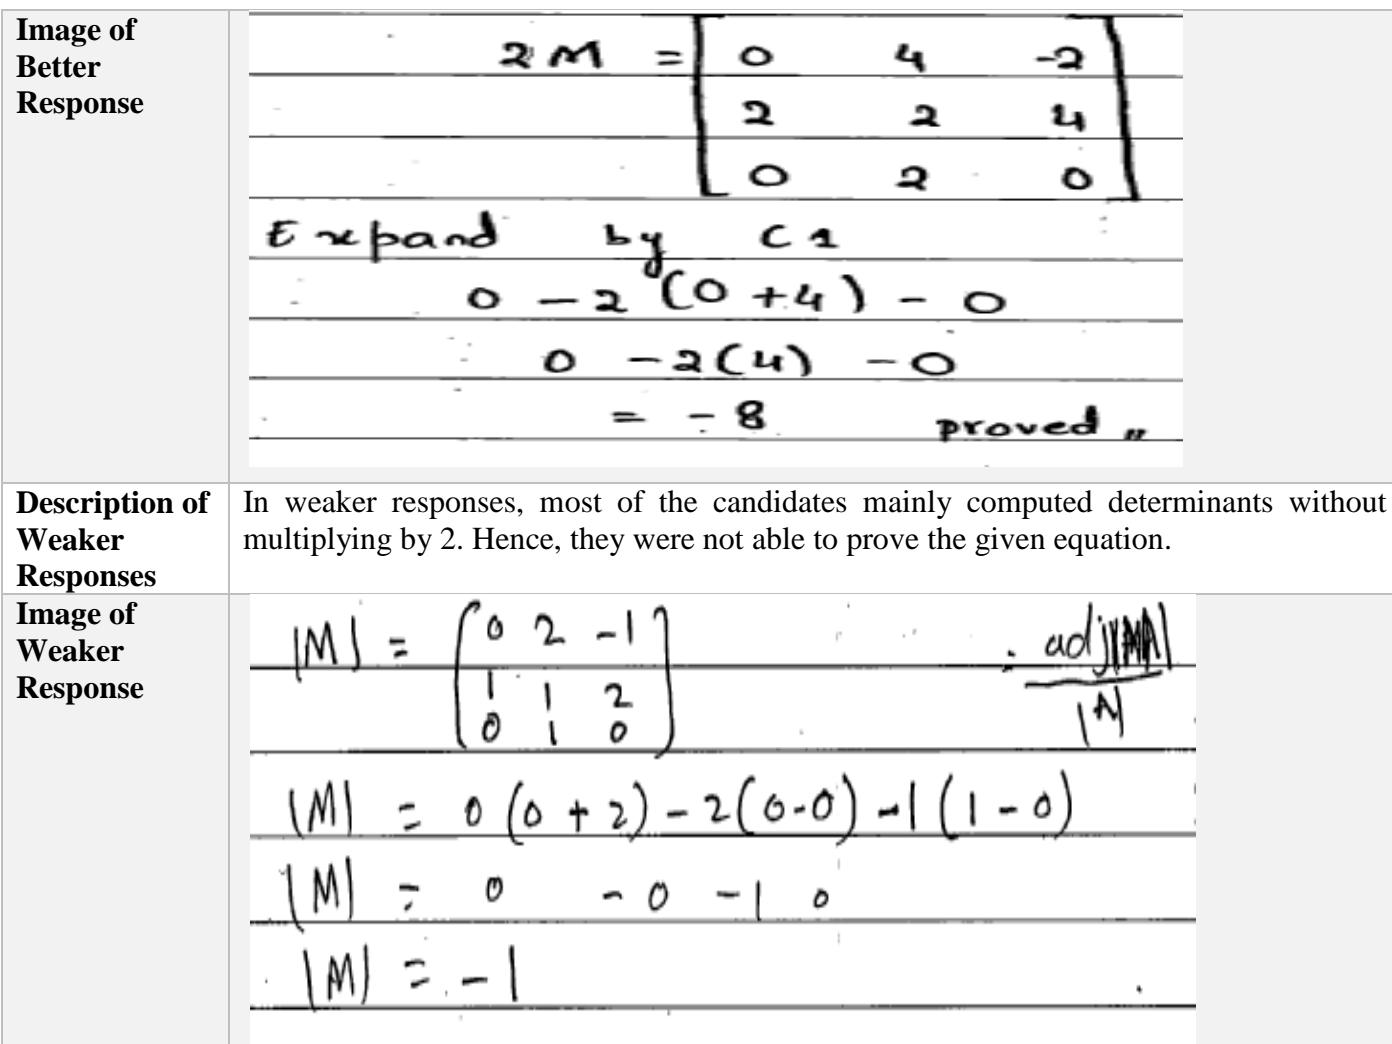 Image of
Better
Response
2M = [ 0 4 -2
2 2 4
0 2 0 ]
Expand by C1
0 - 2 (0 + 4) - 0
0 - 2(4) - 0
= - 8 proved "
Description of
Weaker
Responses
In weaker responses, most of the candidates mainly computed determinants without
multiplying by 2. Hence, they were not able to prove the given equation.
Image of
Weaker
Response
|M| = [ 0 2 -1
1 1 2
0 1 0 ]
|M| = 0 (0 + 2) - 2(0-0) -1 (1 - 0)
|M| = 0 - 0 - 1 0
|M| = - 1